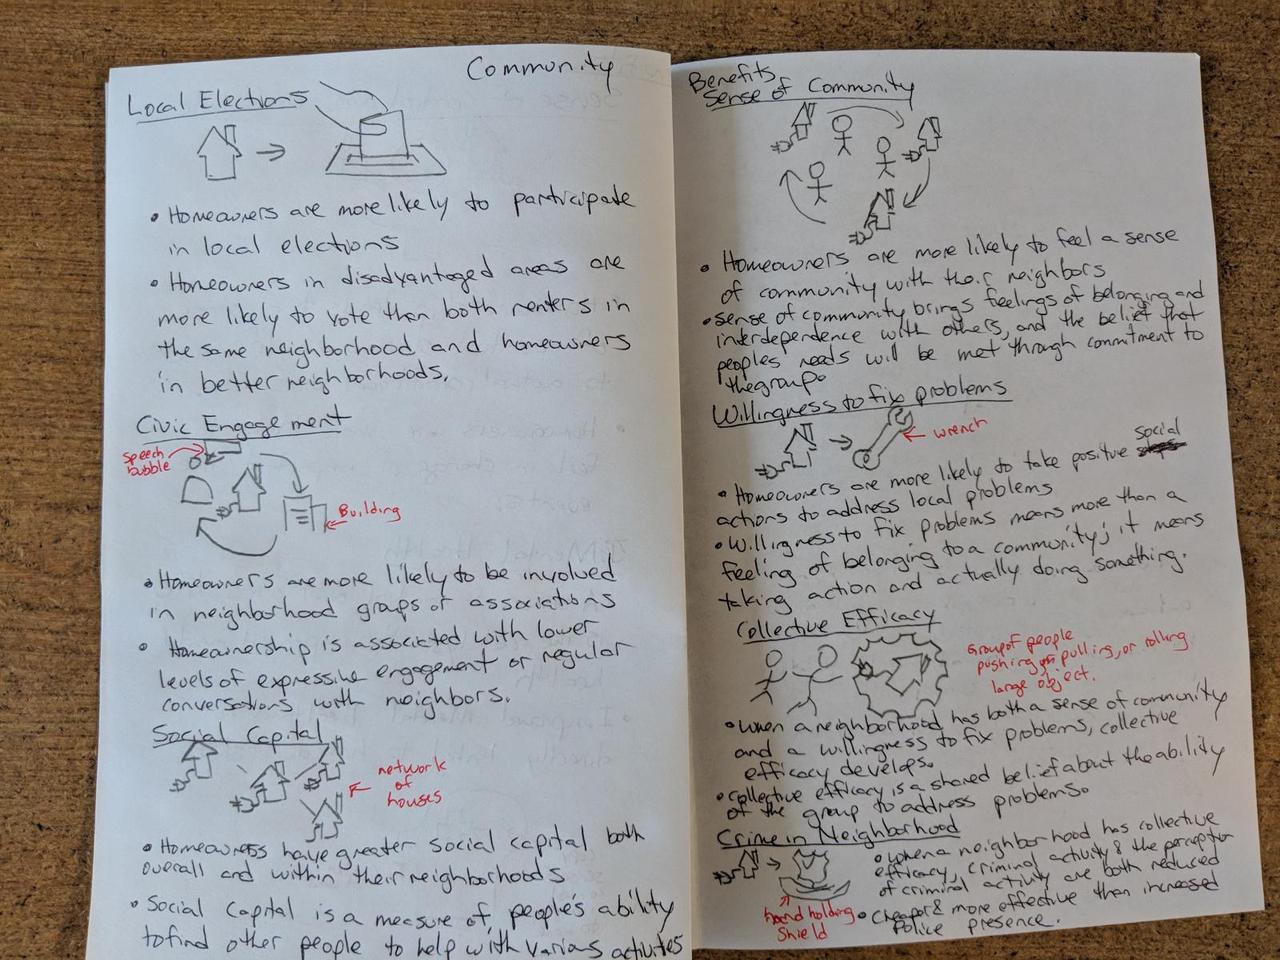 Community
Local Elections
• Homeowners are more likely to participate
in local elections
• Homeowners in disadvantaged areas are
more likely to vote than both renters in
the same neighborhood and homeowners
in better neighborhoods.
Civic Engagement
speech
bubble
Building
• Homeowners are more likely to be involved
in neighborhood groups or associations
• Homeownership is associated with lower
levels of expressive engagement or regular
conversations with neighbors.
Social Capital
network
of
houses
• Homeowners have greater social capital both
overall and within their neighborhoods
• Social Capital is a measure of people's ability
to find other people to help with various activites
Benefits
Sense of Community
• Homeowners are more likely to feel a sense
of community with their neighbors
• sense of community brings feelings of belonging and
interdependence with others, and the belief that
peoples needs will be met through commitment to
the group.
Willingness to fix problems
wrench
• Homeowners are more likely to take positive social
actions to address local problems
• Willingness to fix problems means more than a
feeling of belonging to a community; it means
taking action and actually doing something.
Collective Efficacy
Group of people
pushing, pulling, or rolling
large object.
• When a neighborhood has both a sense of community
and a willingness to fix problems, collective
efficacy develops.
• Collective efficacy is a shared belief about the ability
of the group to address problems.
Crime in Neighborhood
hand holding
shield
• When a neighborhood has collective
efficacy, criminal activity & the perception
of criminal activity are both reduced
• Cheaper & more effective than increased
Police presence.